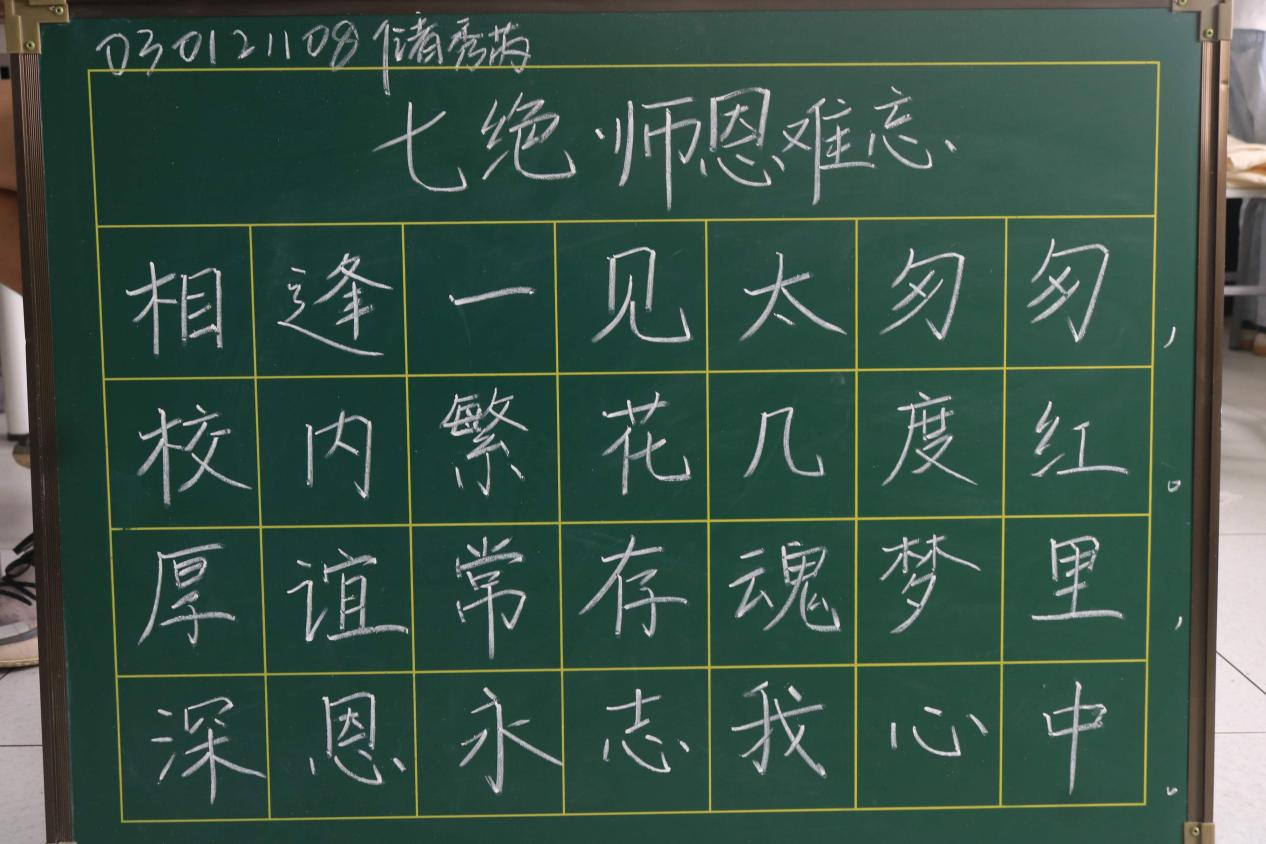 030121108 储秀芮
七绝·师恩难忘
相逢一见太匆匆，
校内繁花几度红。
厚谊常存魂梦里，
深恩永志我心中。